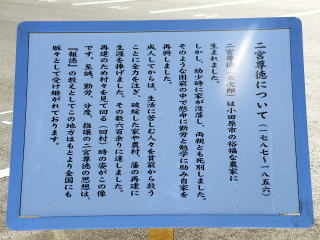 二宮尊徳について（一七八七〜一八五六）
二宮尊徳（金次郎）は小田原市の裕福な農家に
生まれました。
しかし、幼少時に家が没落し、両親とも死別しました。
そのような困窮の中で懸命に勤労と勉学に励み自家を
再興しました。
成人してからは、生活に苦しむ人々を貧窮から救う
ことに全力を注ぎ、破綻した家や農村、藩の再建に
生涯を捧げました。その数六百余りに達しました。
再建のため村々を見て回る「回村」時の姿がこの像
です。至誠、勤労、分度、推譲の二宮尊徳の思想は、
『報徳』の教えとしてこの地方はもとより全国にも
脈々として受け継がれております。